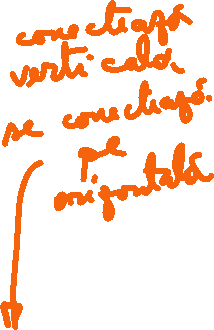 conectează
verticală,
se conectează.
pe
orizontală